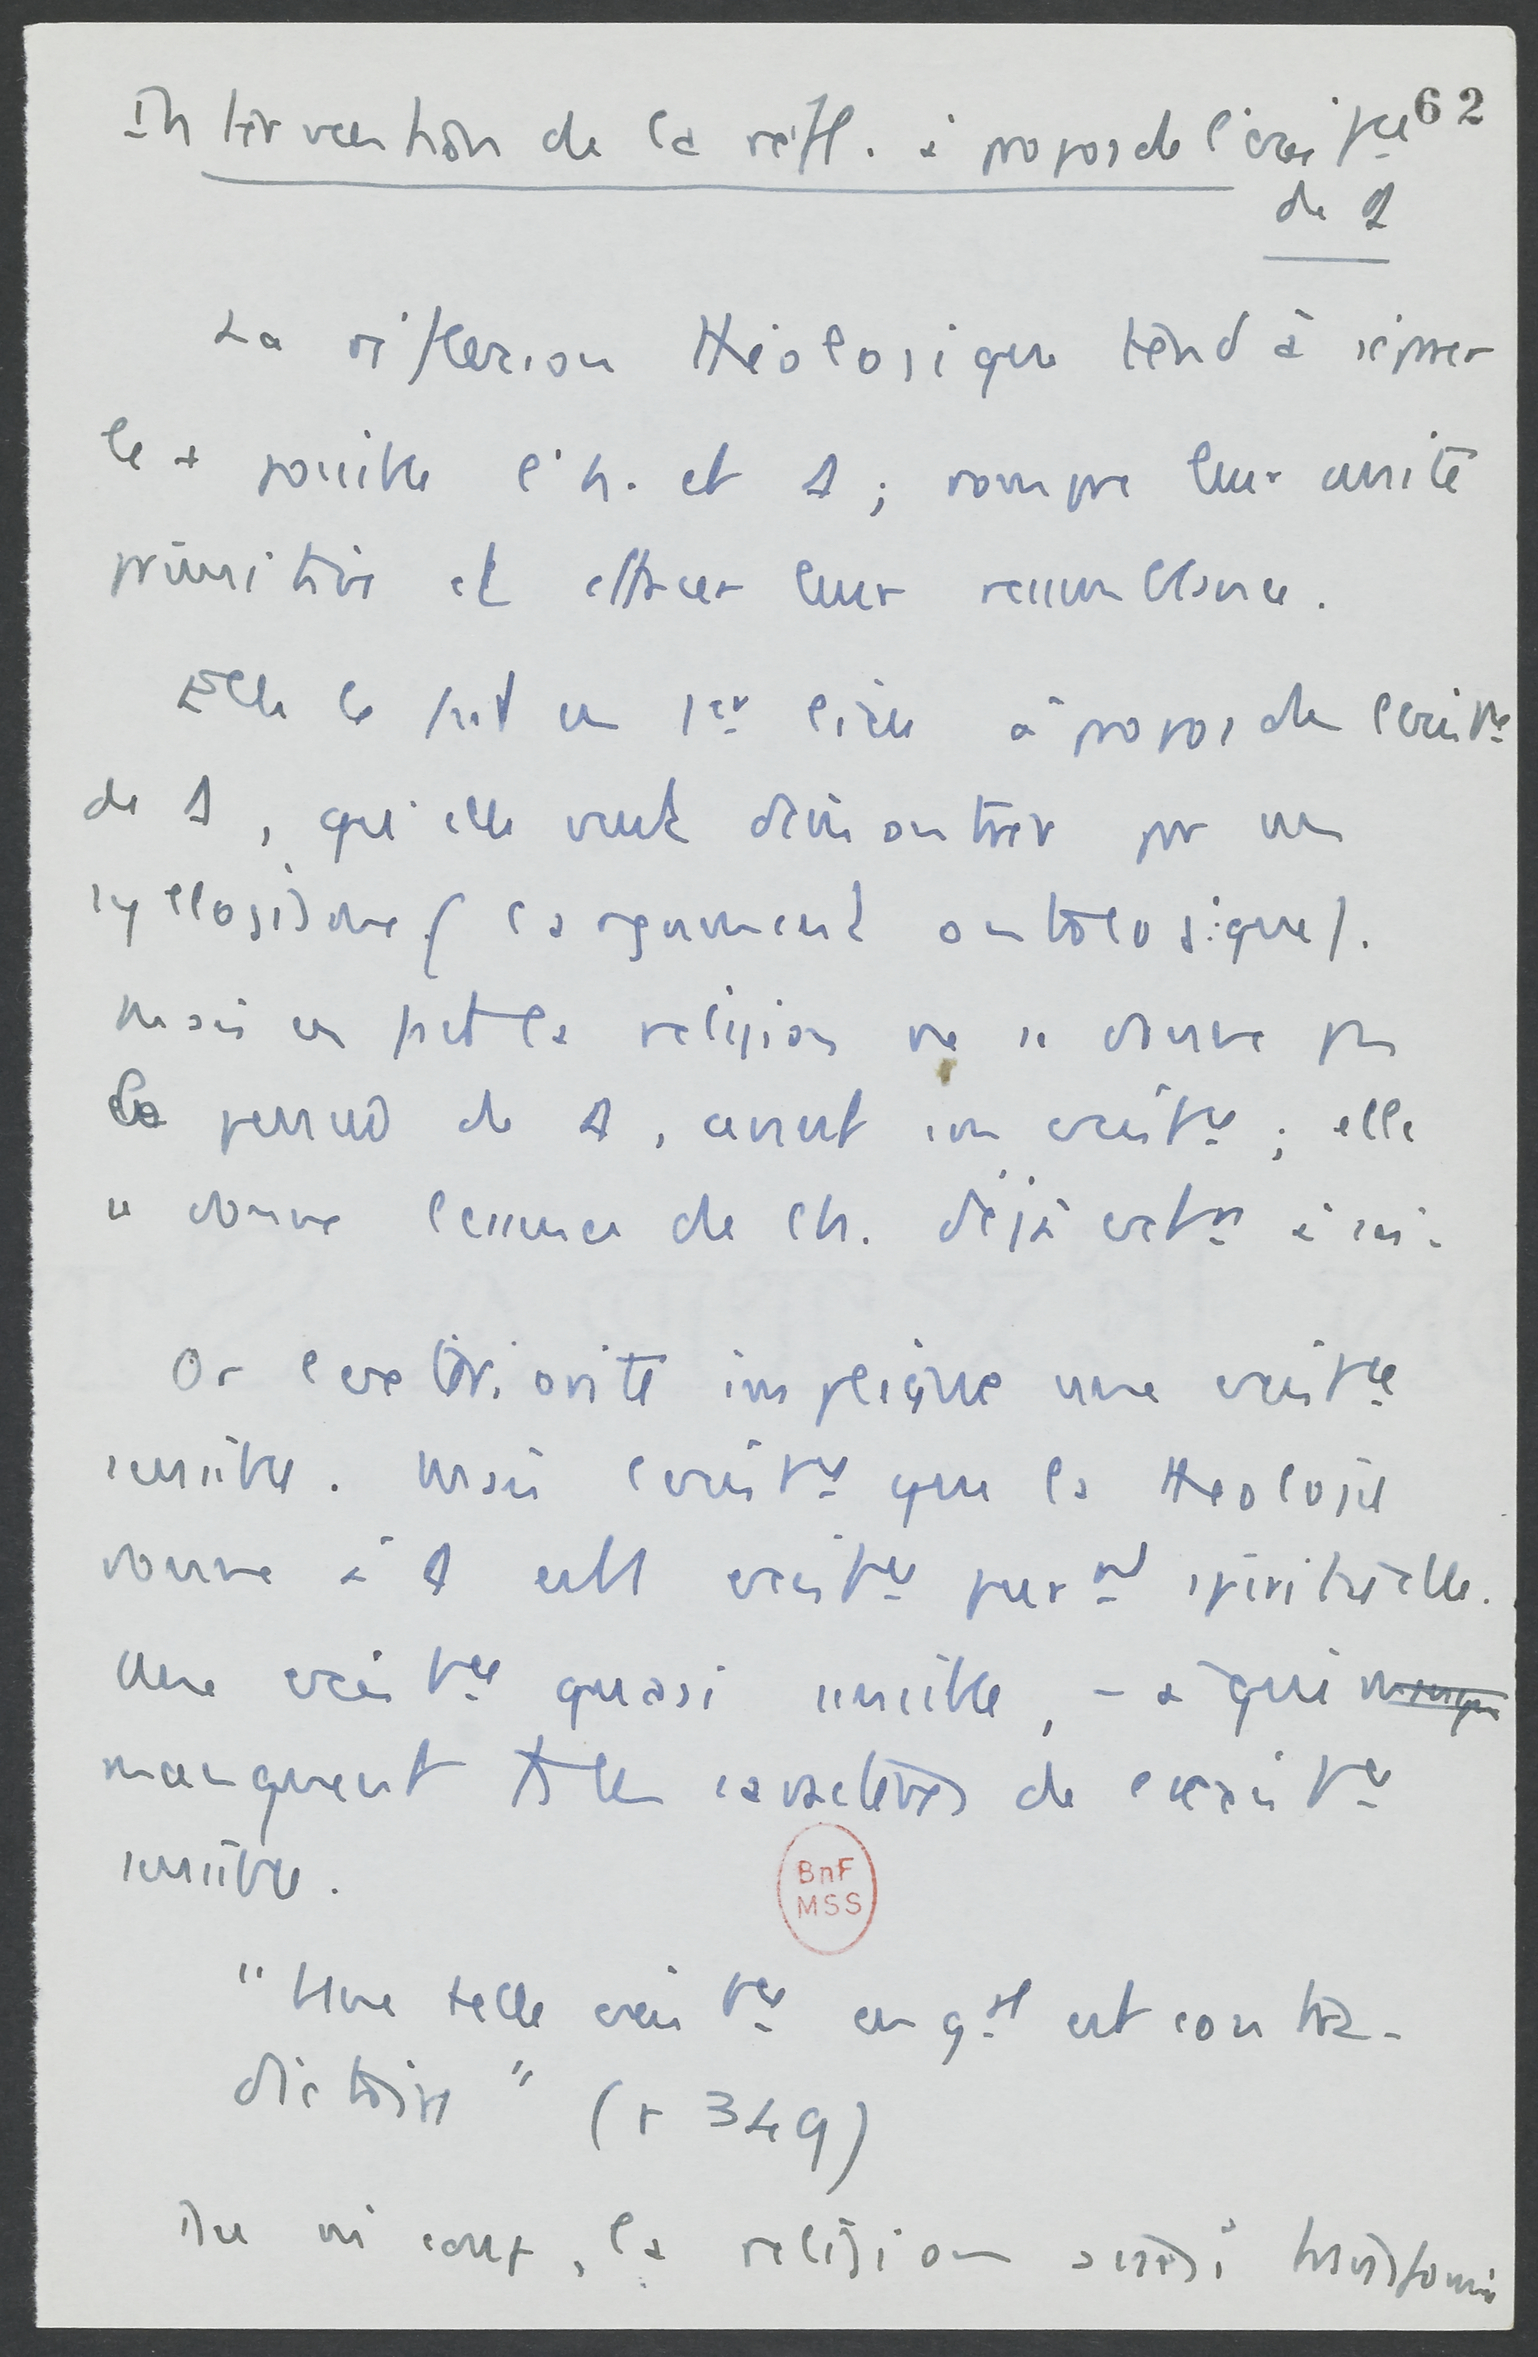 62
Intervention de la réfl. à propos de l'exis^tce
de D
La réflexion théologique tend à séparer
le + possible l'h. et D ; rompre leur unité
primitive et effacer leur ressemblance.
Elle le fait en 1er lieu à propos de l'exis^tce
de D, qu'elle veut démontrer par un
syllogisme (l'argument ontologique).
Mais en fait la religion ne ns donne pas
la pensée de D, avant son exis^tce ; elle
ns donne l'essence de l'h. déjà ext^re à soi.
Or l'extériorité implique une exis^tce
sensible. Mais l'exis^tce que la théologie
donne à D est 1 exis^tce pure^mt spirituelle.
Une exis^tce quasi sensible, – à qui manque
manquent ts les caractères de l'exis^tce
sensible.
"Une telle exis^tce en g^al est contra-
dictoire" (p 349)
Du mê coup, la religion ainsi transformée
BnF
MSS